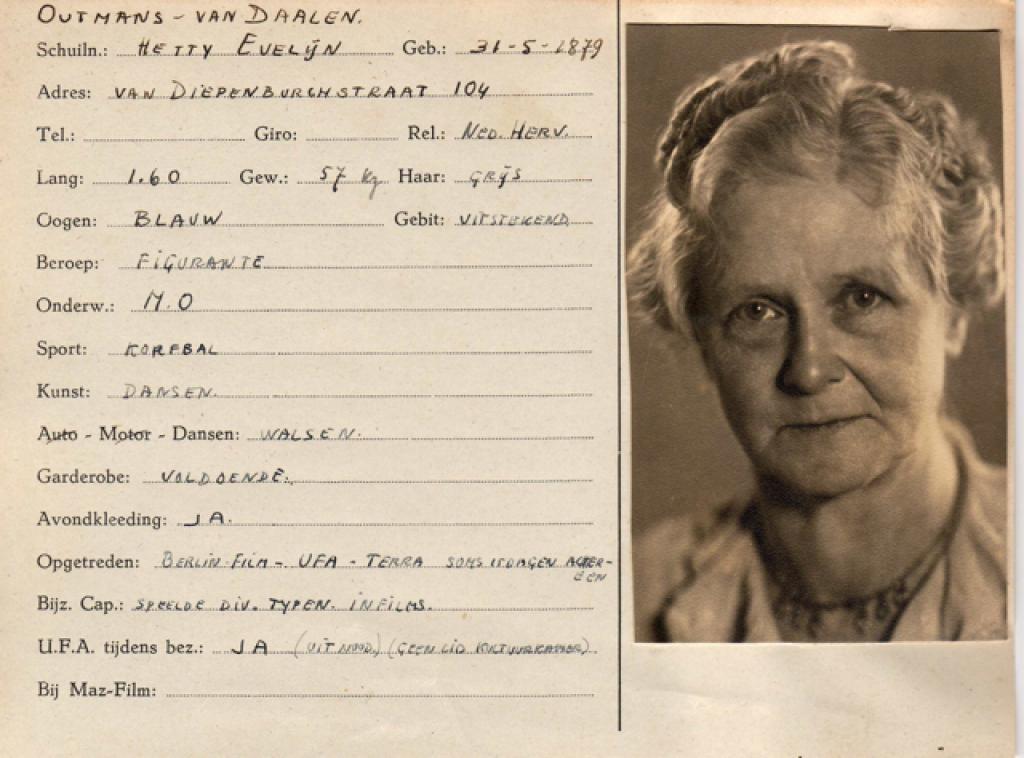 OUTMANS - VAN DAALEN.
Schuiln.: HETTY EVELIJN Geb.: 31-5-1879
Adres: VAN DIEPENBURCHSTRAAT 104
Tel.: Giro: Rel.: NED. HERV.
Lang: 1.60 Gew.: 57 kg Haar: GRIJS
Oogen: BLAUW Gebit: UITSTEKEND
Beroep: FIGURANTE
Onderw.: M.O
Sport: KORFBAL
Kunst: DANSEN.
Auto - Motor - Dansen: WALSEN.
Garderobe: VOLDOENDE.
Avondkleeding: JA.
Opgetreden: BERLIN-FILM - UFA - TERRA SOMS 15 DAGEN ACHTER-
EEN
Bijz. Cap.: SPEELDE DIV. TYPEN. IN FILMS.
U.F.A. tijdens bez.: JA (UIT NOOD.) (GEEN LID KULTUURKAMER).
Bij Maz-Film: